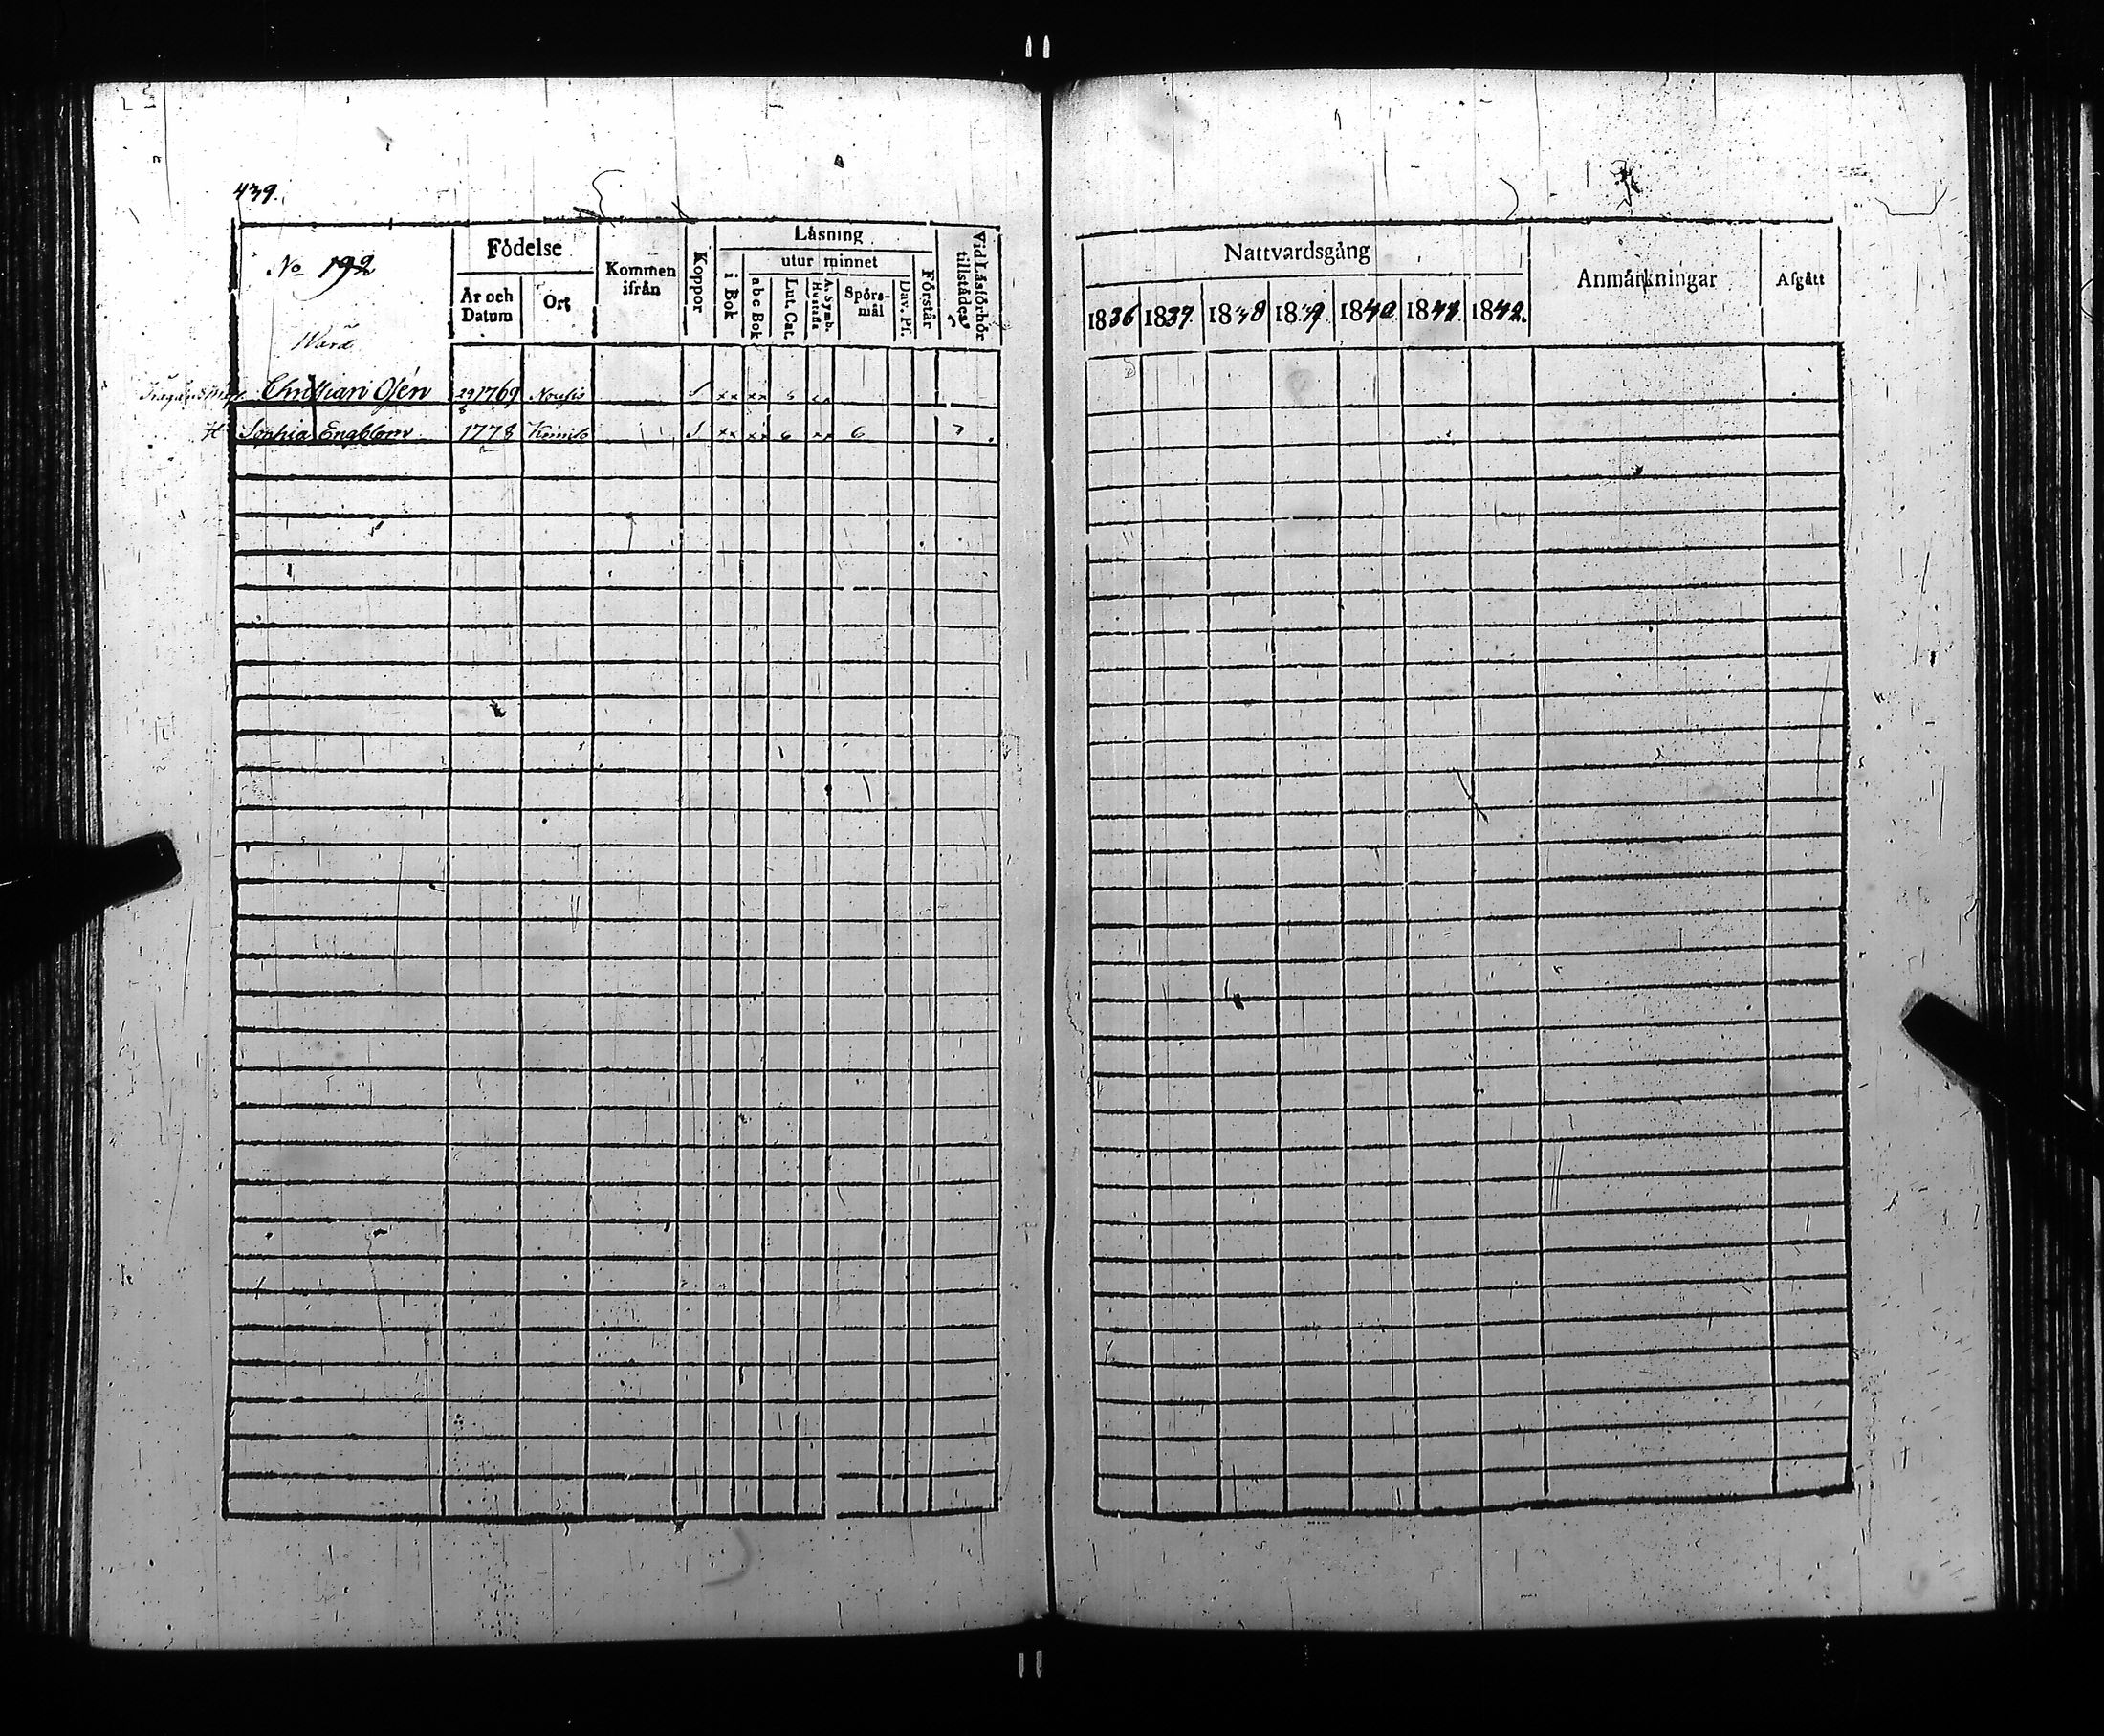 439.
No 192
Födelse
År och Datum
Ort
Kommen ifrån
Koppor
Läsning
i Bok
utur minnet
abc Bok
Lut. Cat.
A. Symb. Hustafla
Spörsmål
Dav. Ps.
Förstår
Vid Läsförhör tillstädes
Nattvardsgång
1836 1837. 1838 1839. 1840. 1841. 1842.
Anmärkningar
Afgått
Christian Osén 29/8 1769 Nousis S xx xx
H. Sophia Engblom 1778 Kimito S xx xx 6 xx 6 7